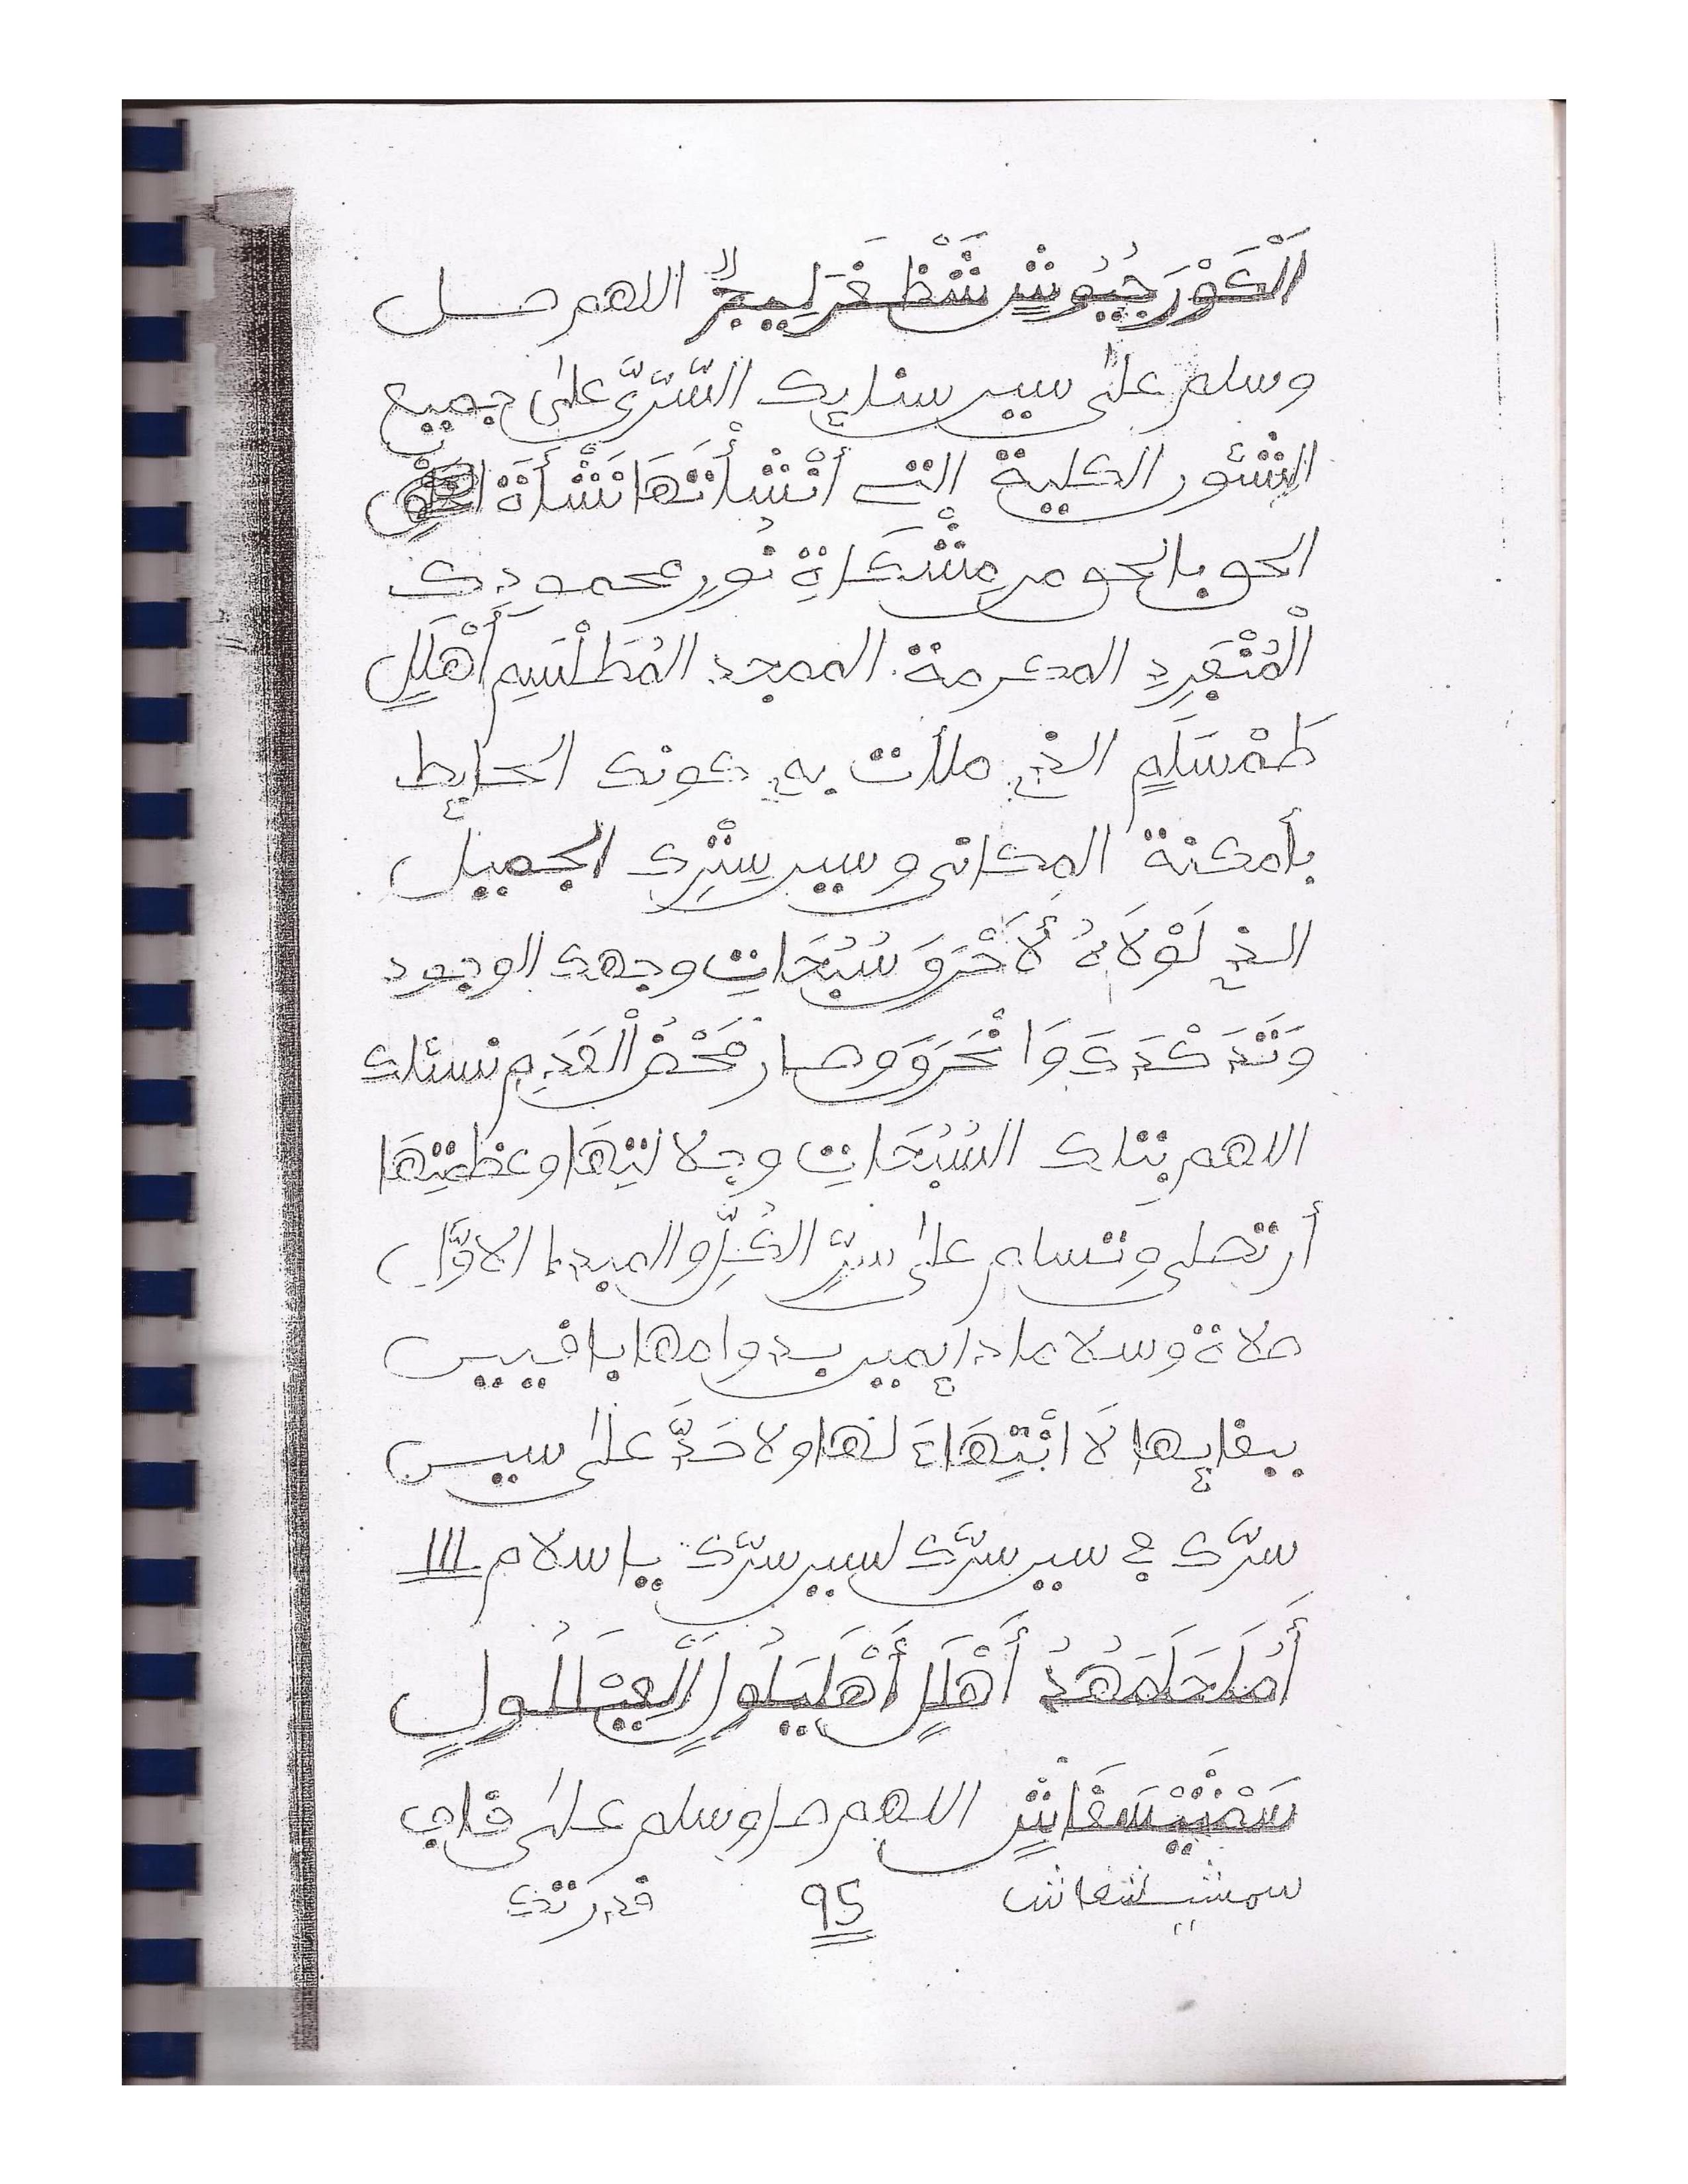 اَلْكَوْرَجُيُوشٍ شَثْظَغَرَلِيجٌ اللهم صل
وسلم على سين سنايك السَّرَيّ على جميع
الشئور الكلية التي أَنْشَأْتَهَا نَشْأَةَ الحَقِّ
الحق بالحق من مِشْكَاةِ نُورِ محموديك
الْمُتَفَرِدِ المكرمة الممجد المُطَلْسَمِ أَهْلَلٍ
طَمْسَلَمٍ الذي ملأت به كونك الحايط
بأمكنة المكاني وسين سِتْرِك الجميل
الذي لَوْلَاهُ لَأَحْرَقَ سُبُحَاتِ وجهك الوجود
وَتَدَكْدَكَ وَانْحَرَقَ وصار مَحْضَ الْعَدَمِ نسئلك
اللهم بتلك السُّبُحَاتِ وجلالتِهَا وعظمتِهَا
أن تصلي وتسلم على سرّ الكُلِّ والمبدإ الاوّل
صلاة وسلاما دايمين بدوامها باقيين
ببقايها لَا انْتِهَاءَ لها ولا حَدَّ على سين
سرّك في سين سرّك لسين سرّك يا سلام 111
أَمَلَحَلَمَهُدُ أَهْلَلٍ أَهْلَيَلُولٍ الَّعَيْلَلُولٍ
سَمْشَيْتَسَغَاشٍ اللهم صل وسلم على قلب
سمشيتشغاش 95 قدرتك